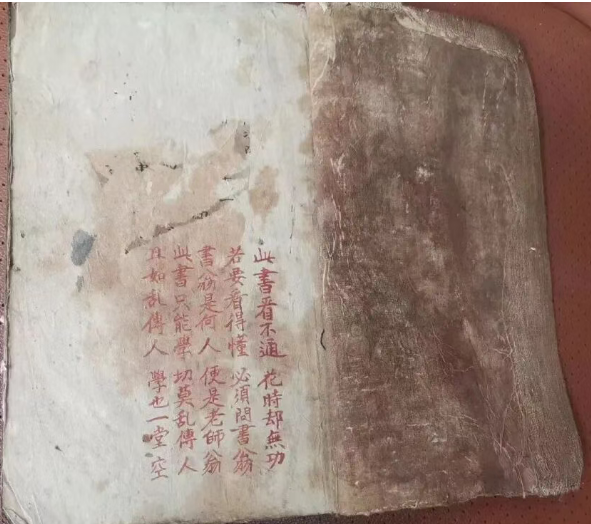 此書看不通 花時却無功
若要看得懂 必須問書翁
書翁是何人 便是老師翁
此書只能學 切莫乱傳人
且如乱傳人 學也一堂空